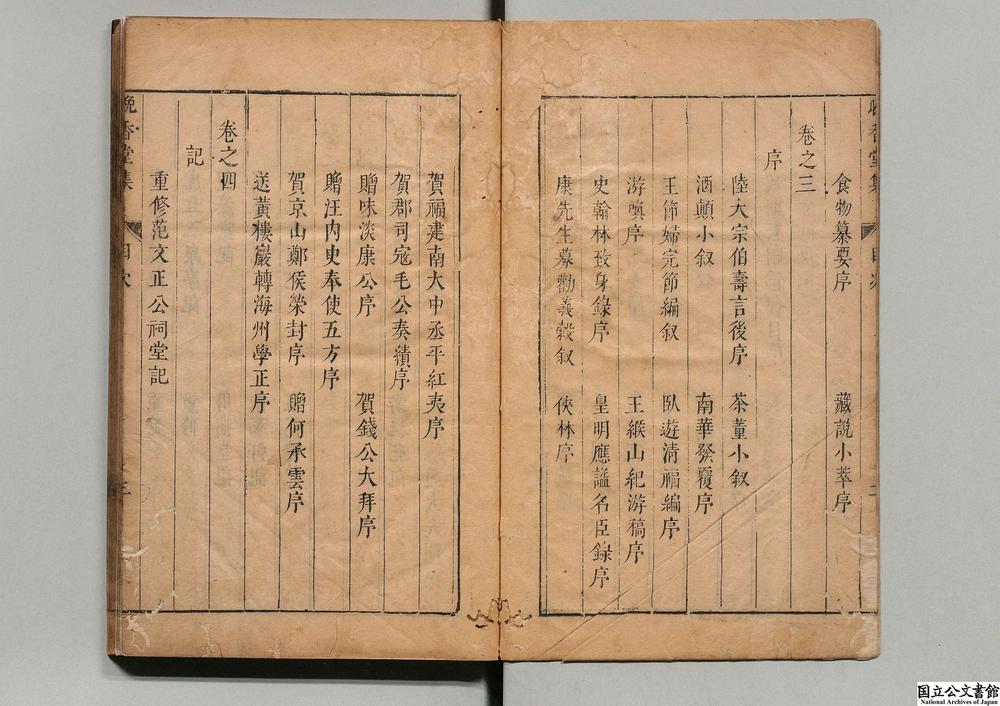 食物纂要序 藏説小萃序
卷之三
序
陸大宗伯壽言後序 茶董小叙
酒顛小叙 南華發覆序
王節婦完節編叙 臥遊清福編序
游喚序 王緱山紀游稿序
史翰林致身錄序 皇明應謚名臣錄序
康先生募勸義穀叙 俠林序
賀福建南大中丞平紅夷序
賀郡司寇毛公奏績序
贈味淡康公序 賀錢公大拜序
贈汪内史奉使五方序
賀京山鄭侯榮封序 贈何承雲序
送黃樓巖轉海州學正序
卷之四
記
重修范文正公祠堂記
晚香堂集 目次 三
国立公文書館
National Archives of Japan